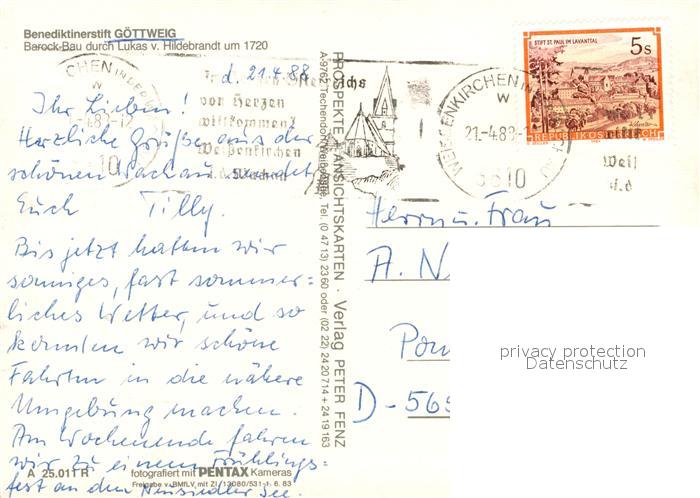 Benediktinerstift GÖTTWEIG
Barock-Bau durch Lukas v. Hildebrandt um 1720
d. 21.4.88
Ihr Lieben!
Herzliche Grüße aus der
schönen Wachau sendet
Euch Tilly.
Bis jetzt hatten wir
sonniges, fast sommer=
liches Wetter, und so
konnten wir schöne
Fahrten in die nähere
Umgebung machen.
Am Wochenende fahren
wir zu einem Frühlings=
fest an den Neusiedler See.
A 25.011 R fotografiert mit PENTAX Kameras
Freigabe v. BMfLV mit Zl/13080/531-1.6.83
PROSPEKTE + ANSICHTSKARTEN · Verlag PETER FENZ
A-9762 Techendorf/Weißensee, Tel. (0 47 13) 23 60 oder (02 22) 24 20 714 + 24 19 163
CHEN IN DER
W
-4.88-12
10
von Herzen
willkommen!
Weißenkirchen
i.d. Wachau
WEISSENKIRCHEN IN
W
21.-4.88-1
3610
AU
Weiß
i.d.
STIFT ST. PAUL IM LAVANTTAL
5 S
REPUBLIK ÖSTERREICH
Herrn u. Frau
A. N
D-565
privacy protection
Datenschutz